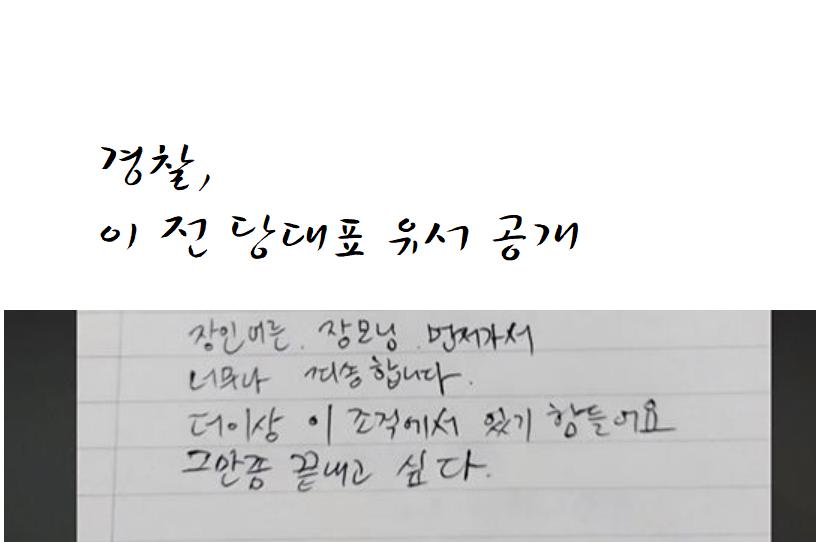 경찰,
이 전 당대표 유서 공개
장인어른. 장모님. 먼저가서
너무나 죄송합니다.
더이상 이 조직에서 있기 힘들어요
그만 끝내고 싶다.